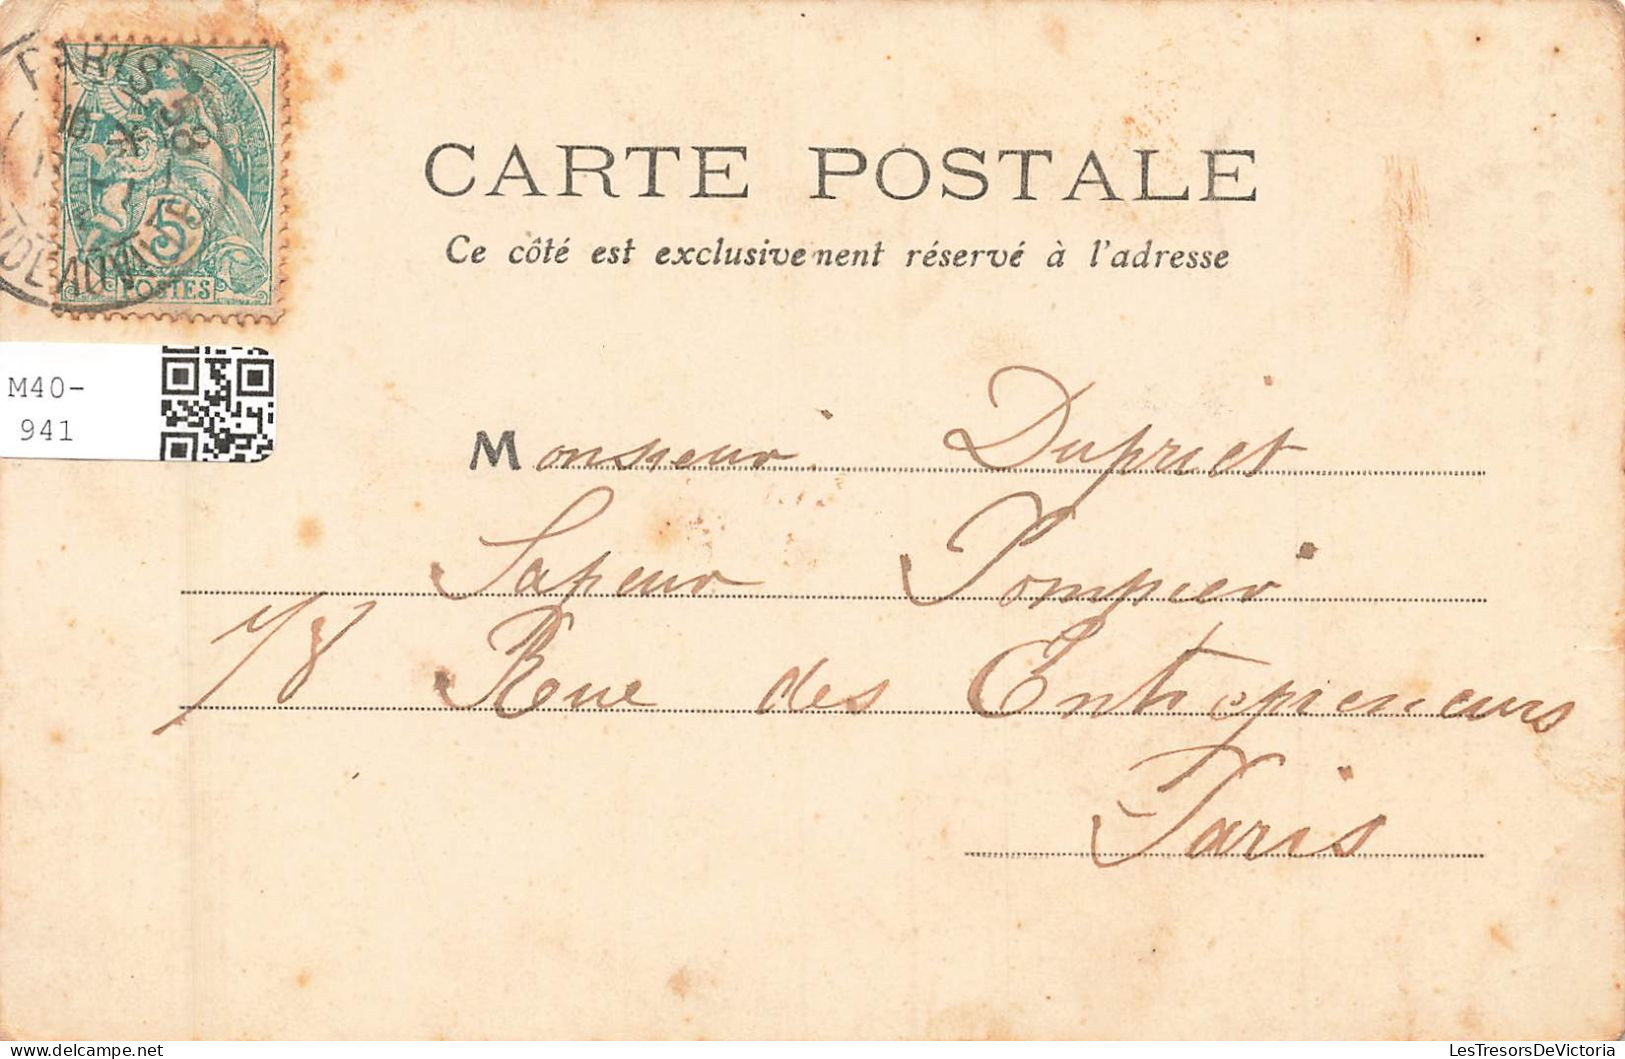 PARIS 58
5
POSTES
CARTE POSTALE
Ce côté est exclusivement réservé à l'adresse
M40-
941
Monsieur Dupriet
Sapeur Pompier
78 Rue des Entrepreneurs
Paris
LesTresorsDeVictoria